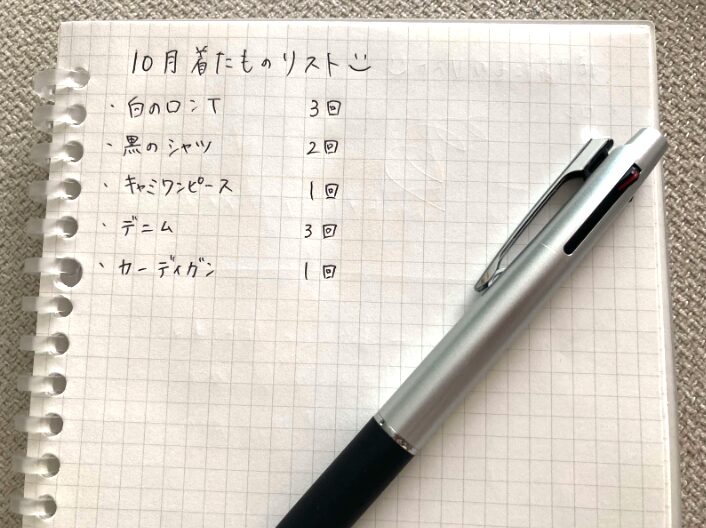 10月着たものリスト
・白のロンT 3回
・黒のシャツ 2回
・キャミワンピース 1回
・デニム 3回
・カーディガン 1回